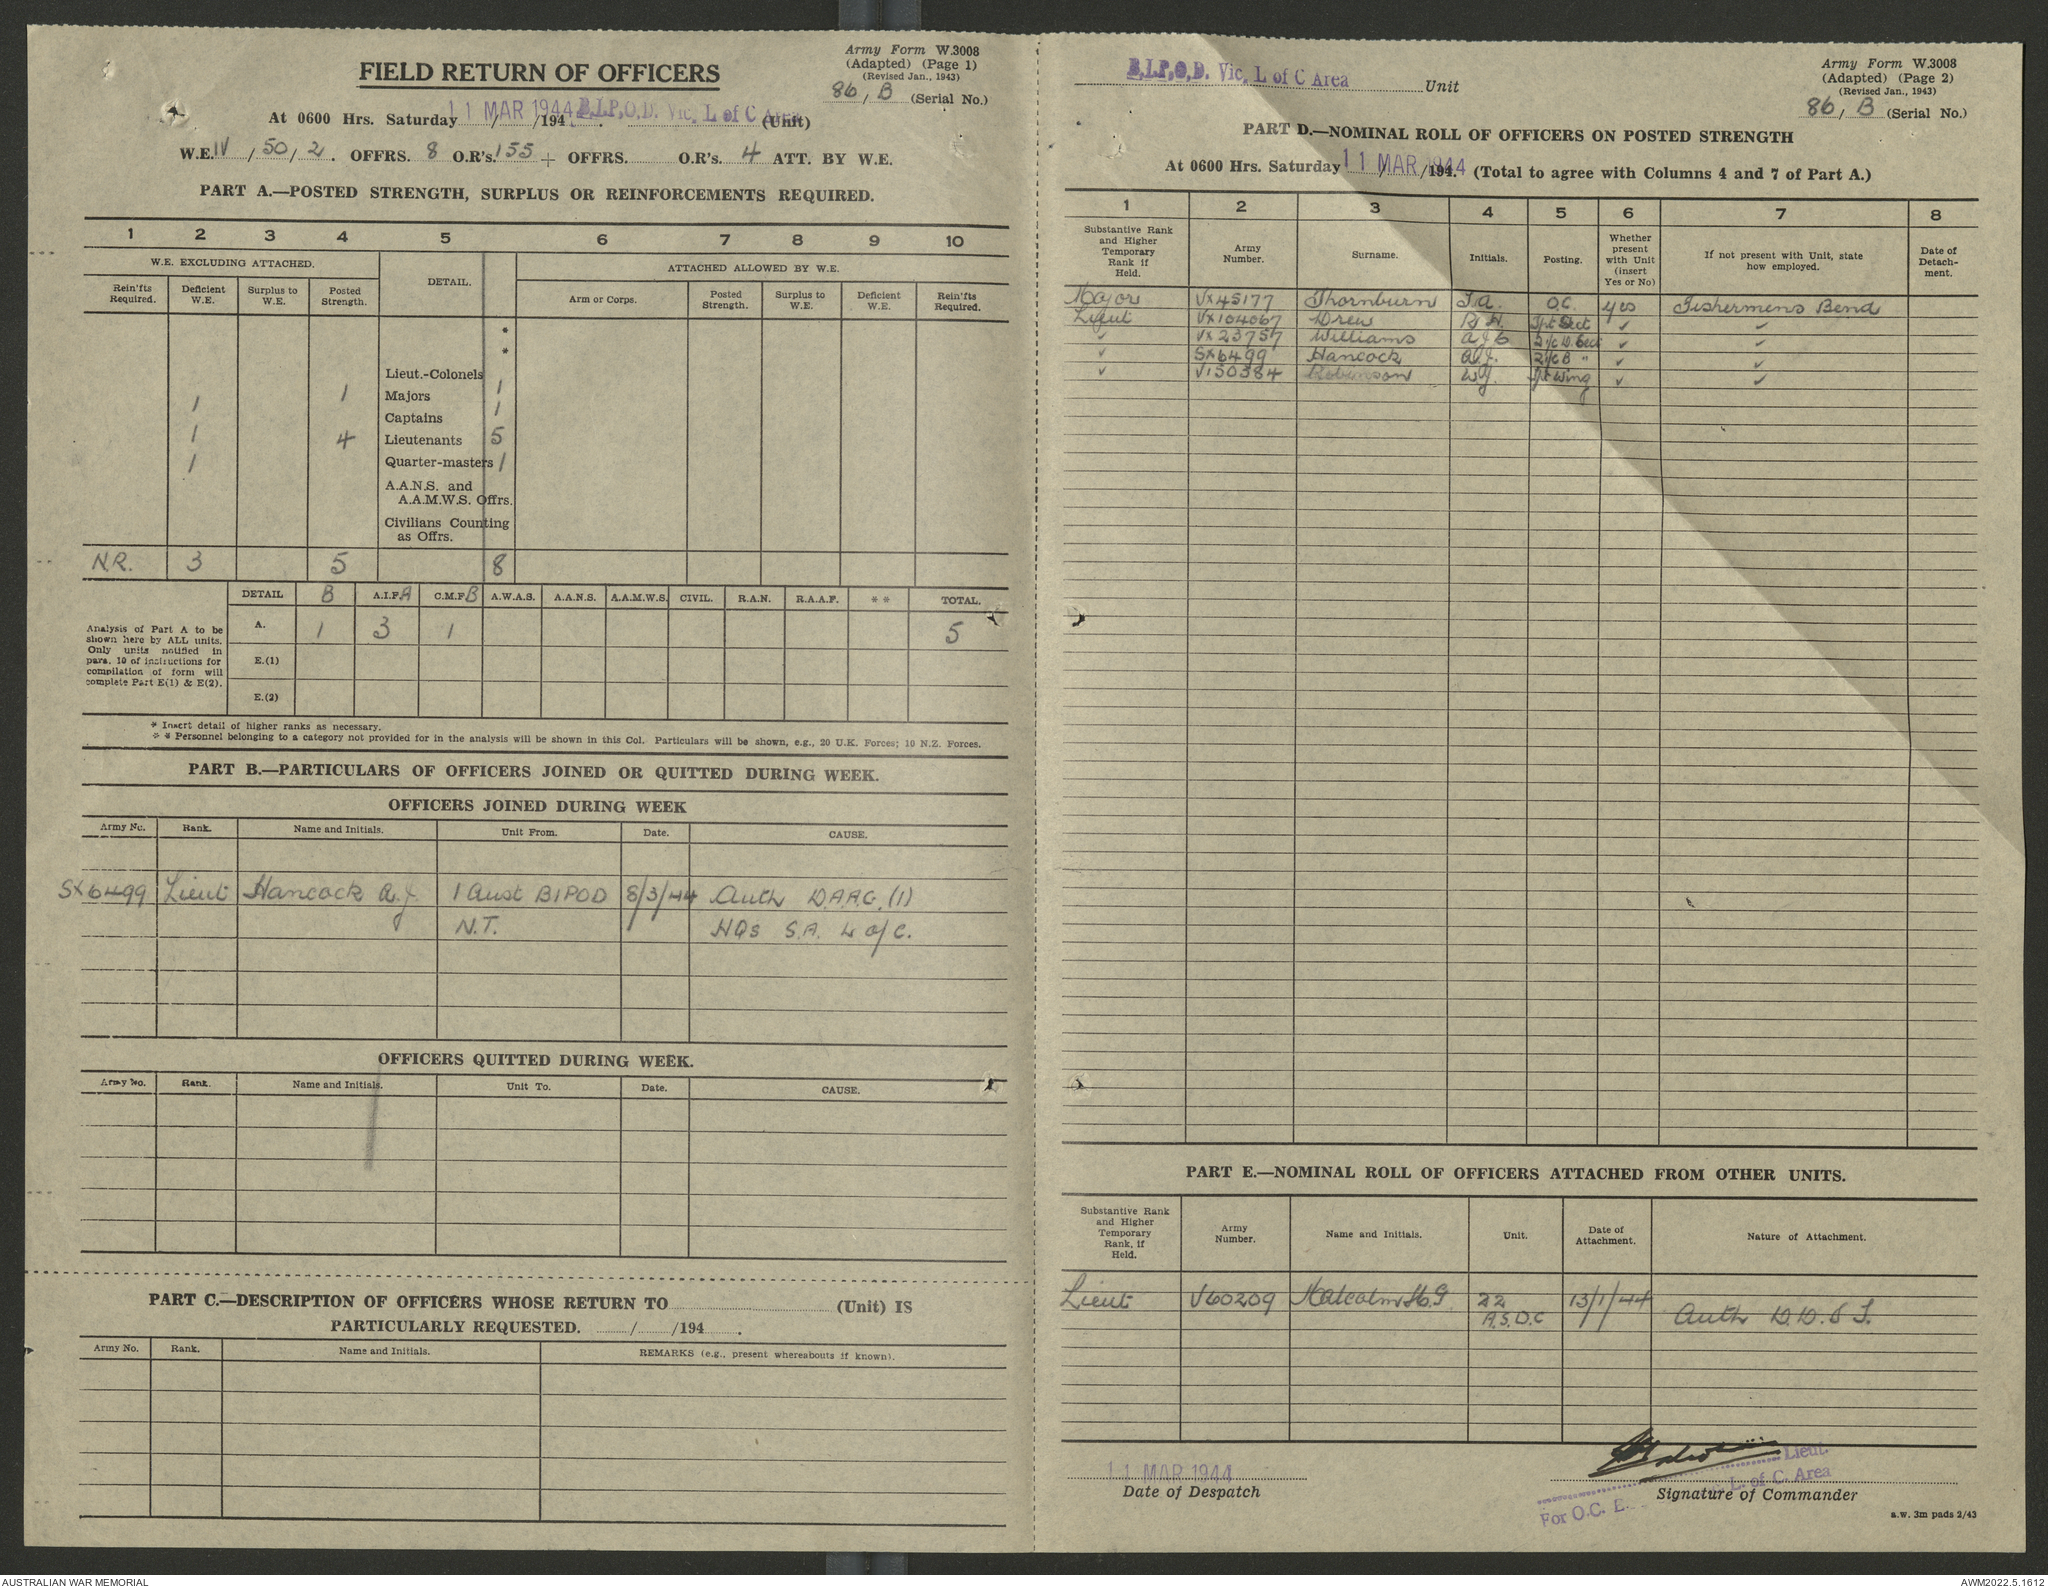 Army Form W.3008
(Adapted) (Page 1)
(Revised Jan., 1943)
86 / B (Serial No.)
FIELD RETURN OF OFFICERS
At 0600 Hrs. Saturday 11 MAR 1944 /194 B.I.P.O.D. Vic. L of C Area (Unit)
W.E. IV / 50 / 2. OFFRS. 8 O.R's. 155 + OFFRS. O.R's. 4 ATT. BY W.E.
PART A.—POSTED STRENGTH, SURPLUS OR REINFORCEMENTS REQUIRED.
1 2 3 4 5 6 7 8 9 10
W.E. EXCLUDING ATTACHED. DETAIL. ATTACHED ALLOWED BY W.E.
Rein'fts Required. Deficient W.E. Surplus to W.E. Posted Strength. Arm or Corps. Posted Strength. Surplus to W.E. Deficient W.E. Rein'fts Required.
*
*
Lieut.-Colonels
1 Majors 1
1 Captains 1
1 4 Lieutenants 5
1 Quarter-masters 1
A.A.N.S. and
A.A.M.W.S. Offrs.
Civilians Counting
as Offrs.
N.R. 3 5 8
DETAIL B A.I.F.A C.M.F.B A.W.A.S. A.A.N.S. A.A.M.W.S. CIVIL. R.A.N. R.A.A.F. * * TOTAL.
Analysis of Part A to be
shown here by ALL units.
Only units notified in
para. 10 of instructions for
compilation of form will
complete Part E(1) & E(2).
A. 1 3 1 5
E.(1)
E.(2)
* Insert detail of higher ranks as necessary.
* * Personnel belonging to a category not provided for in the analysis will be shown in this Col. Particulars will be shown, e.g., 20 U.K. Forces; 10 N.Z. Forces.
PART B.—PARTICULARS OF OFFICERS JOINED OR QUITTED DURING WEEK.
OFFICERS JOINED DURING WEEK
Army No. Rank. Name and Initials. Unit From. Date. CAUSE.
SX6499 Lieut Hancock A.J. 1 Aust BIPOD 8/3/44 Auth D.A.A.G. (1)
N.T. HQs S.A. L o/C.
OFFICERS QUITTED DURING WEEK.
Army No. Rank. Name and Initials. Unit To. Date. CAUSE.
PART C.—DESCRIPTION OF OFFICERS WHOSE RETURN TO (Unit) IS
PARTICULARLY REQUESTED. / /194 .
Army No. Rank. Name and Initials. REMARKS (e.g., present whereabouts if known).
B.I.P.O.D. Vic. L of C Area Unit
Army Form W.3008
(Adapted) (Page 2)
(Revised Jan., 1943)
86 / B (Serial No.)
PART D.—NOMINAL ROLL OF OFFICERS ON POSTED STRENGTH
At 0600 Hrs. Saturday 11 MAR 1944 /194. (Total to agree with Columns 4 and 7 of Part A.)
1 2 3 4 5 6 7 8
Substantive Rank and Higher Temporary Rank if Held. Army Number. Surname. Initials. Posting. Whether present with Unit (insert Yes or No) If not present with Unit, state how employed. Date of Detach-ment.
Major VX45177 Thornburn J.A. O.C. yes Fishermens Bend
Lieut VX104067 Drew R.H. Sect ✓ ✓
✓ VX23757 Williams ✓ ✓
✓ SX6499 Hancock A.J. 2i/c B " ✓ ✓
✓ V150384 Robinson W.J. Wing ✓ ✓
PART E.—NOMINAL ROLL OF OFFICERS ATTACHED FROM OTHER UNITS.
Substantive Rank and Higher Temporary Rank, if Held. Army Number. Name and Initials. Unit. Date of Attachment. Nature of Attachment.
Lieut V60209 Malcolm H.G 22 13/1/44
A.S.D.C Auth D.D.S T.
11 MAR 1944
Date of Despatch
Lieut.
For O.C. L. of C. Area
Signature of Commander
a.w. 3m pads 2/43
AUSTRALIAN WAR MEMORIAL
AWM2022.5.1612